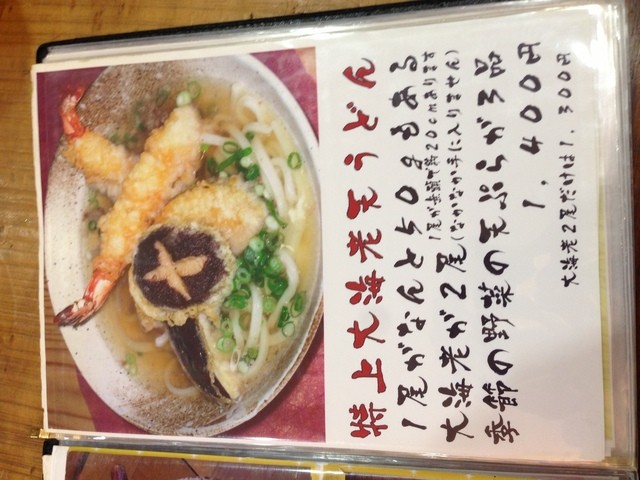 特上大海老天うどん
1尾がなんと50gもある
1尾が無頭で約20cmあります
大海老が2尾(なかなか手に入りません)
季節の野菜の天ぷらが3品
1,400円
大海老2尾だけは1,300円